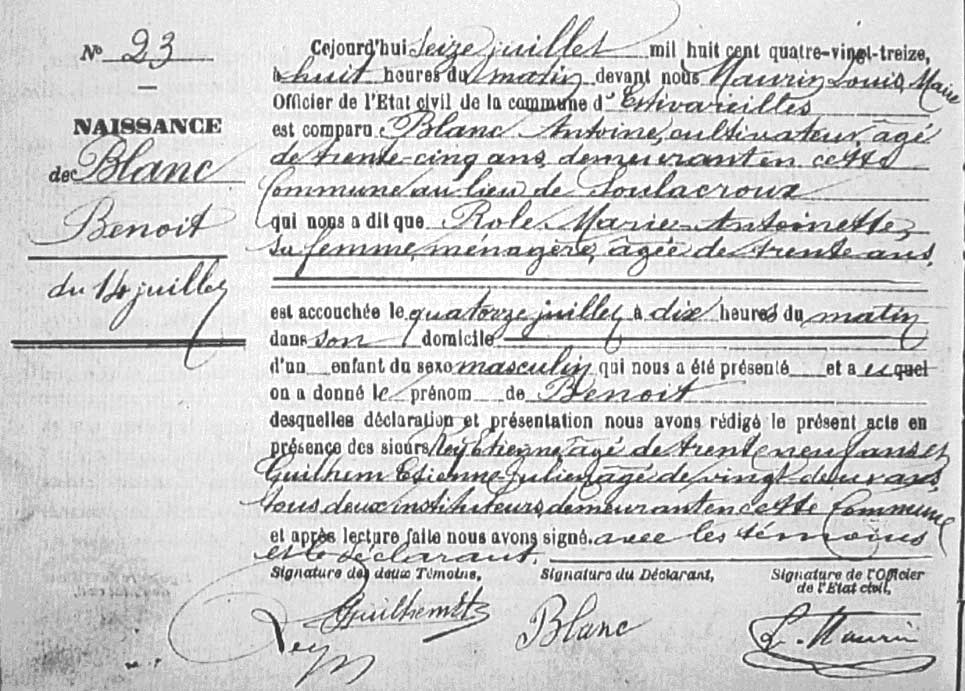 N° 23
NAISSANCE
de Blanc
Benoit
du 14 juillet
Cejourd'hui seize juillet mil huit cent quatre-vingt-treize,
à huit heures du matin devant nous Maurin Louis, Maire
Officier de l'Etat civil de la commune d'Estivareilles
est comparu Blanc Antoine, cultivateur, âgé
de trente-cinq ans, demeurant en cette
Commune au lieu de Soulacroux
qui nous a dit que Role Marie-Antoinette,
sa femme, ménagère, âgée de trente ans,
est accouchée le quatorze juillet, à dix heures du matin
dans son domicile
d'un enfant du sexe masculin qui nous a été présenté et auquel
on a donné le prénom de Benoit
desquelles déclaration et présentation nous avons rédigé le présent acte en
présence des sieurs Rey Etienne, âgé de trente neuf ans et
Guilhem Etienne-Julien, âgé de vingt-deux ans,
tous deux instituteurs, demeurant en cette Commune
et après lecture faite nous avons signé. avec les témoins
et le déclarant.
Signature des deux Témoins, Signature du Déclarant, Signature de l'Officier
de l'Etat civil,
Guilhem Et
Rey Blanc L. Maurin